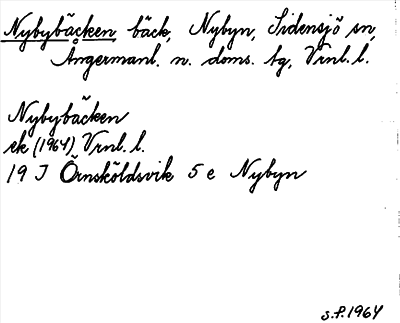 Nybybäcken bäck, Nybyn, Sidensjö sn,
Ångermanl. n. doms. tg, Vrnl. l.
Nybybäcken
ek (1964) Vrnl. l.
19 J Örnsköldsvik 5 e Nybyn
S.F. 1964